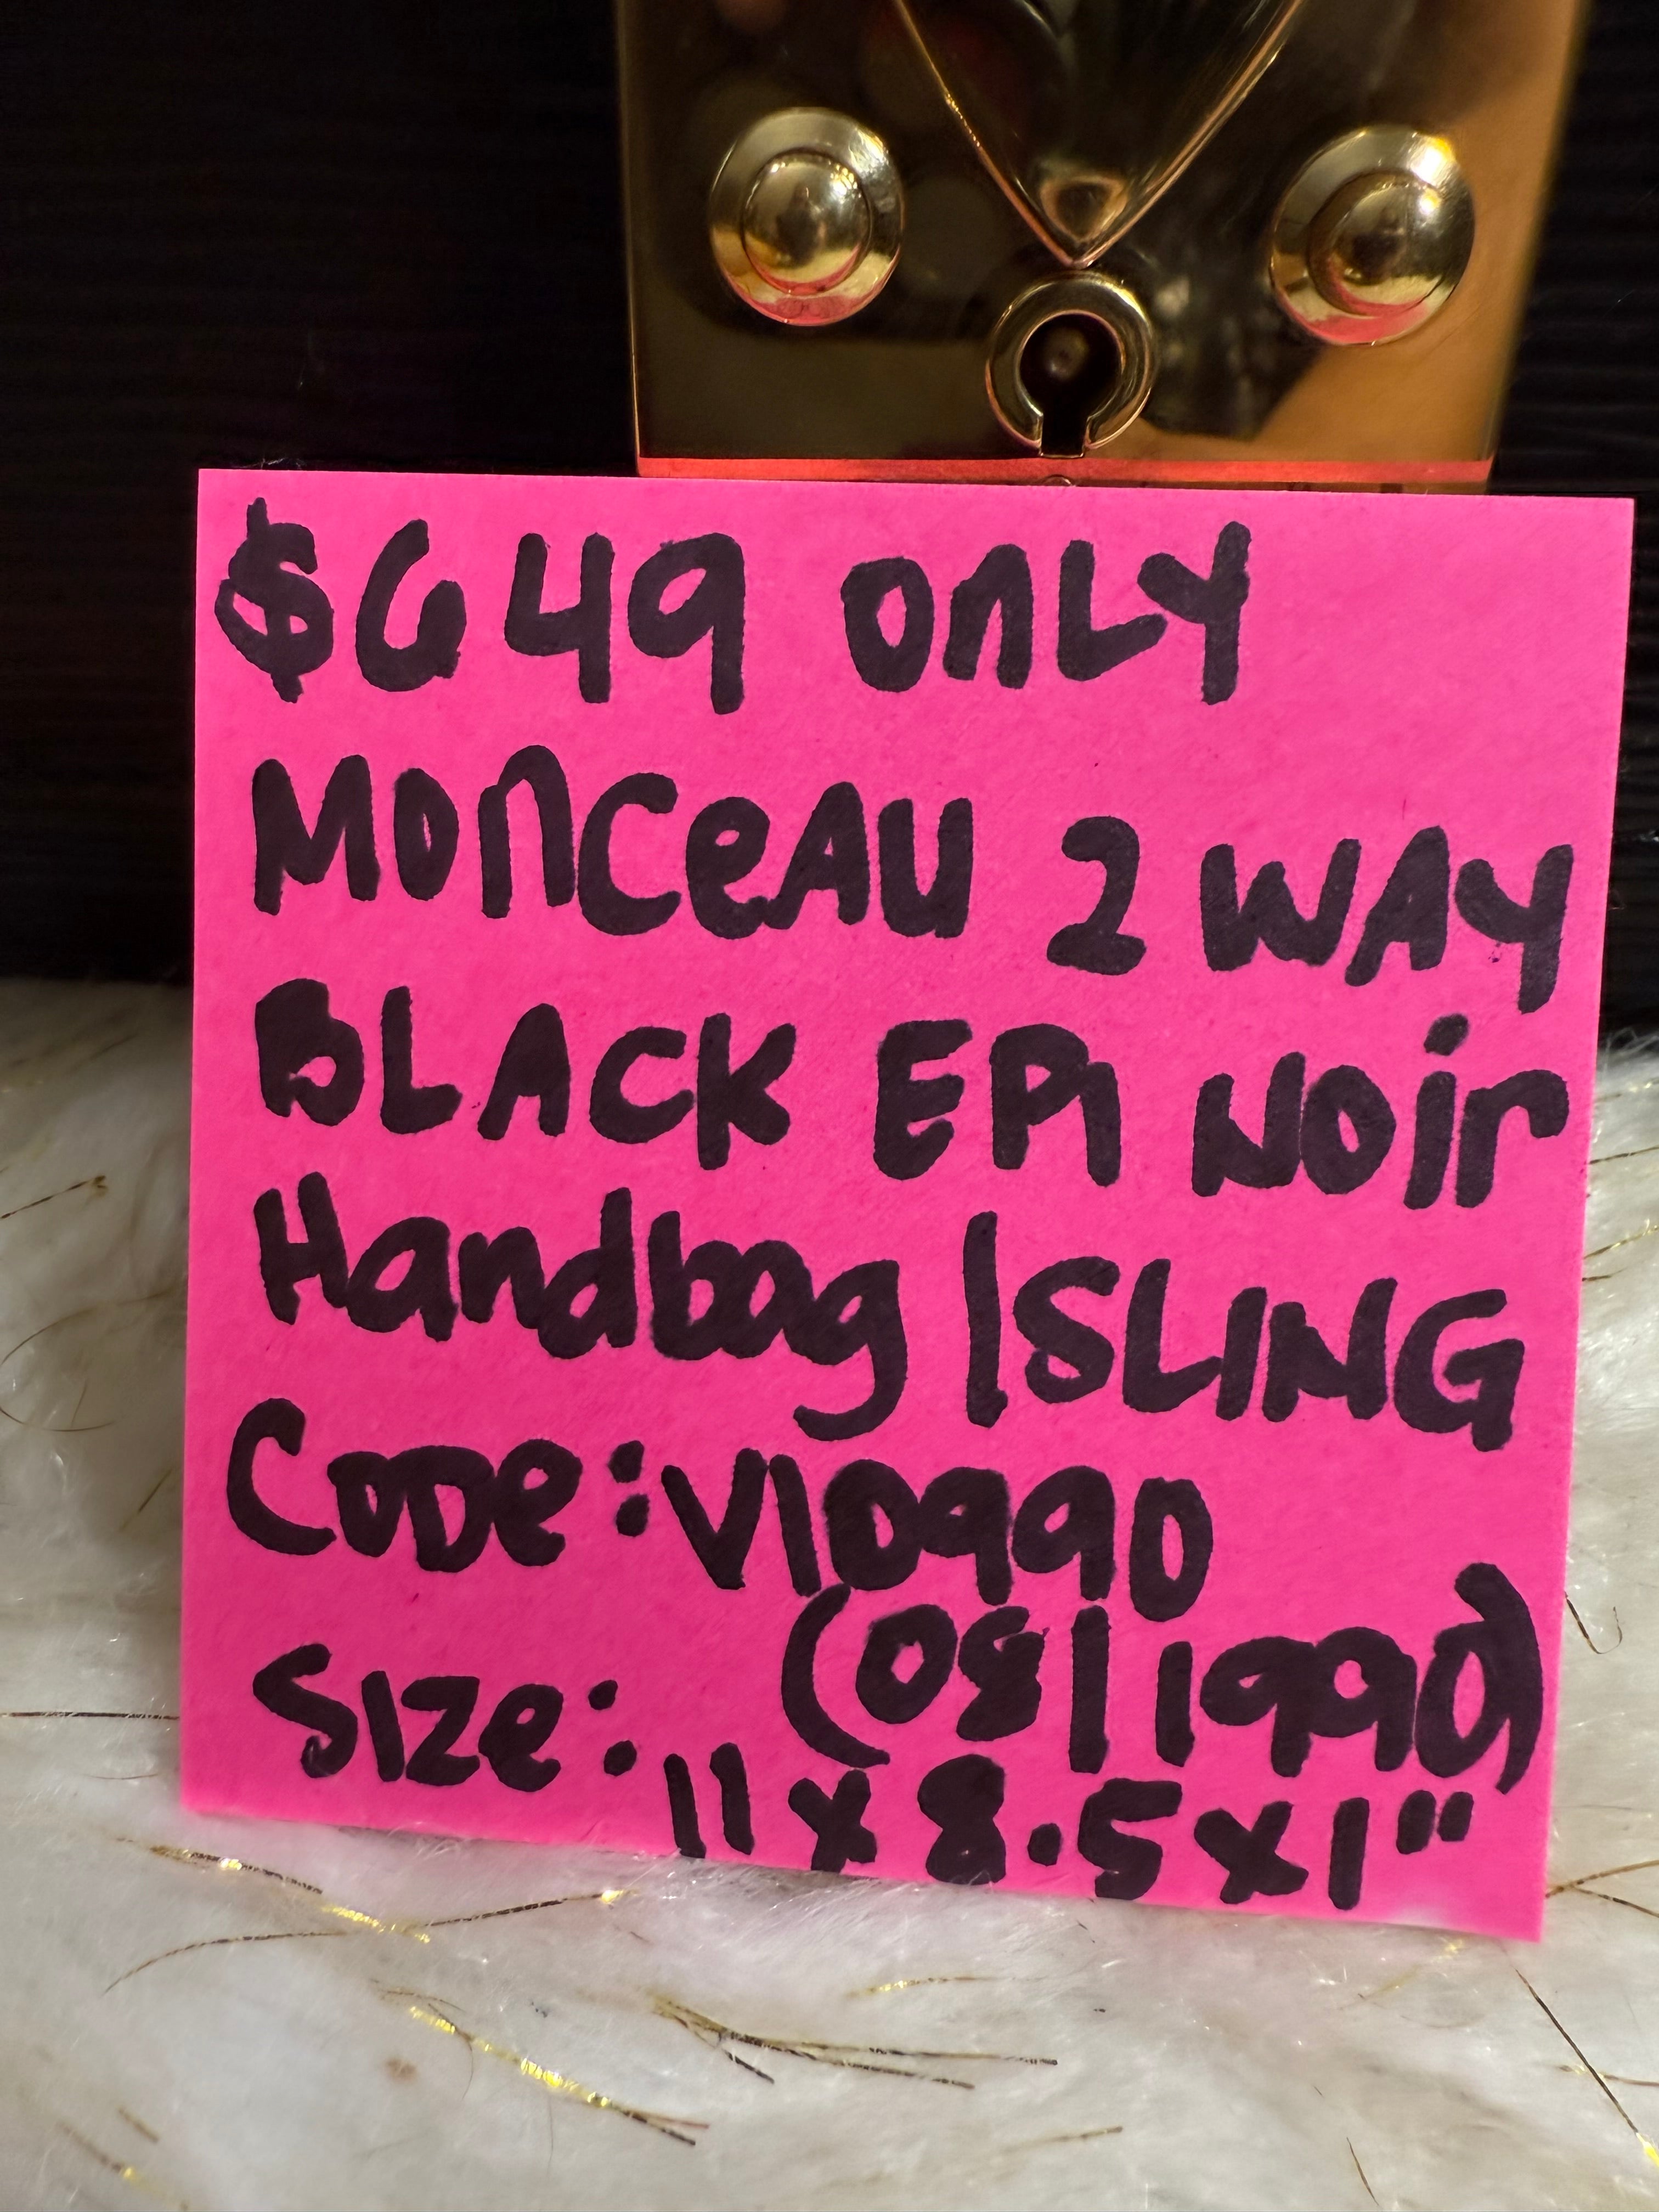 $649 ONLY
MONCEAU 2 WAY
BLACK EPI NOIR
Handbag | SLING
CODE: VI0990
(08/1990)
SIZE: 11 x 8.5 x 1"